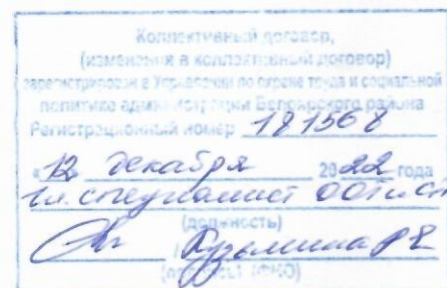 Коллективный договор,
(изменения в коллективный договор)
зарегистрирован в Управлении по охране труда и социальной
политике администрации Белоярского района
Регистрационный номер 181568
«12» декабря 2022 года
гл. специалист
(должность)
Кузьмина
(подпись) (ФИО)